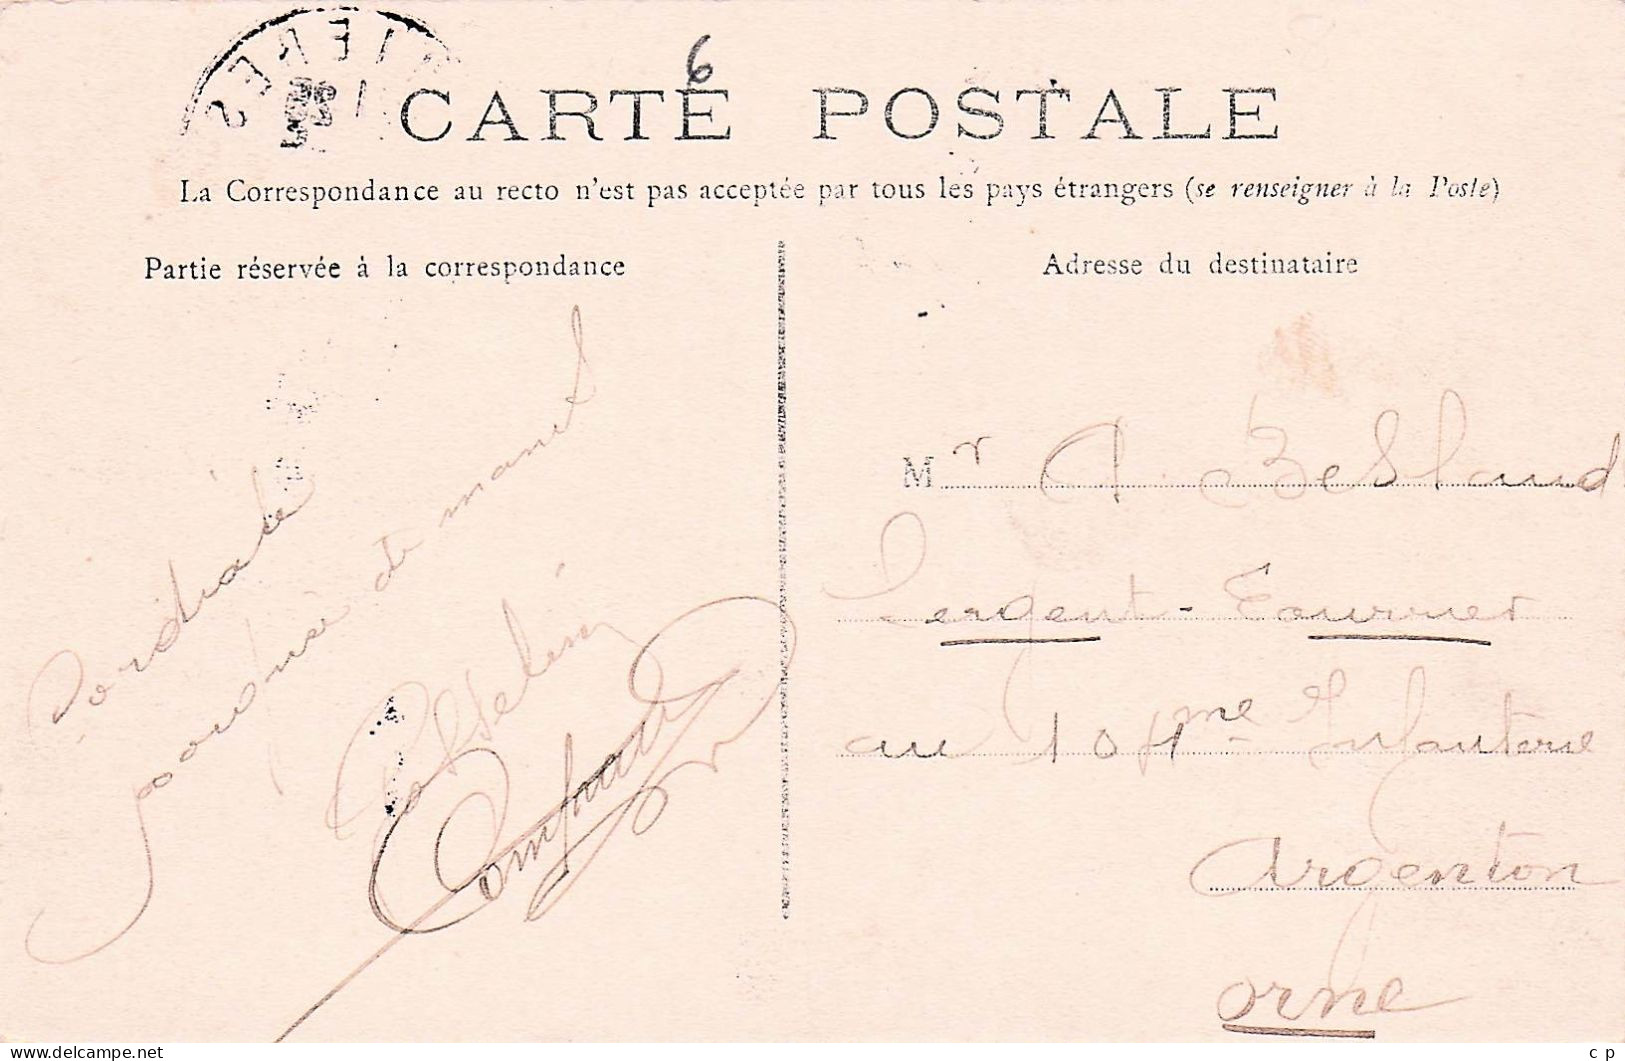 6
CARTE POSTALE
La Correspondance au recto n'est pas acceptée par tous les pays étrangers (se renseigner à la Poste)
Partie réservée à la correspondance
Adresse du destinataire
Cordiale
poignée de main
Mr A. Beslaud
Sergent-Fourrier
au 104me Infanterie
Argenton
Orne
c p